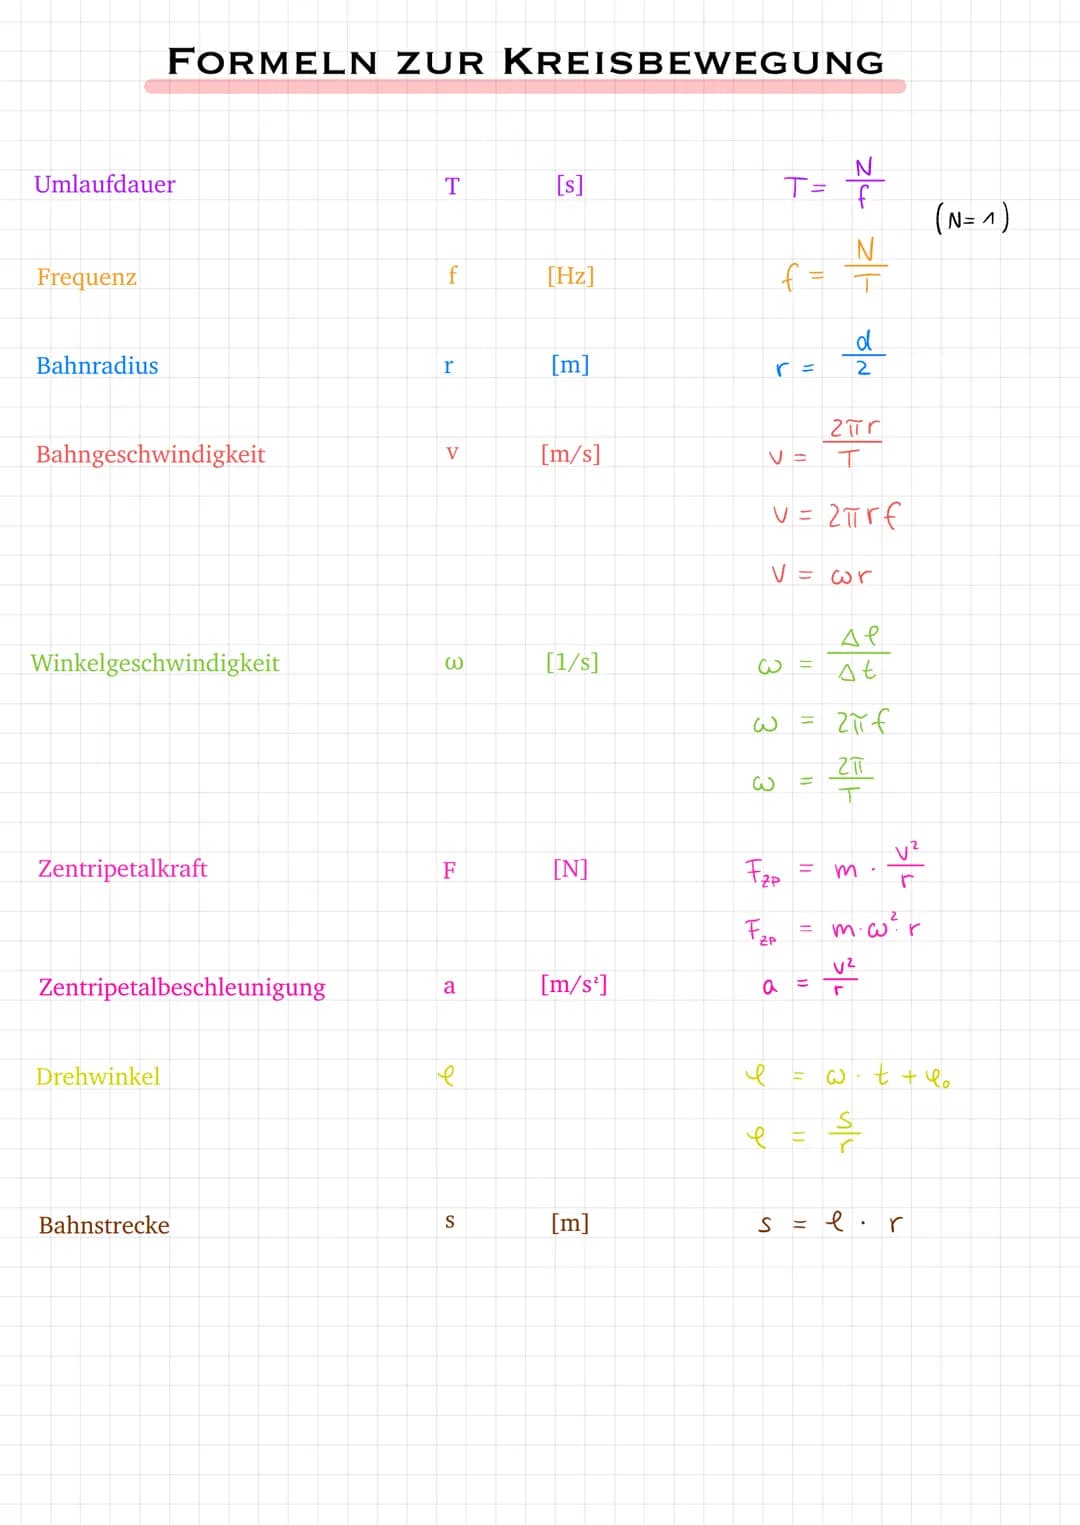 FORMELN ZUR KREISBEWEGUNG
Umlaufdauer T [s] T = N/f
(N = 1)
Frequenz f [Hz] f = N/T
Bahnradius r [m] r = d/2
Bahngeschwindigkeit v [m/s] v = 2πr/T
v = 2πrf
v = ωr
Winkelgeschwindigkeit ω [1/s] ω = Δφ/Δt
ω = 2πf
ω = 2π/T
Zentripetalkraft F [N] F_ZP = m · v²/r
F_ZP = m·ω²·r
Zentripetalbeschleunigung a [m/s²] a = v²/r
Drehwinkel φ φ = ω · t + φ₀
φ = s/r
Bahnstrecke s [m] s = φ · r